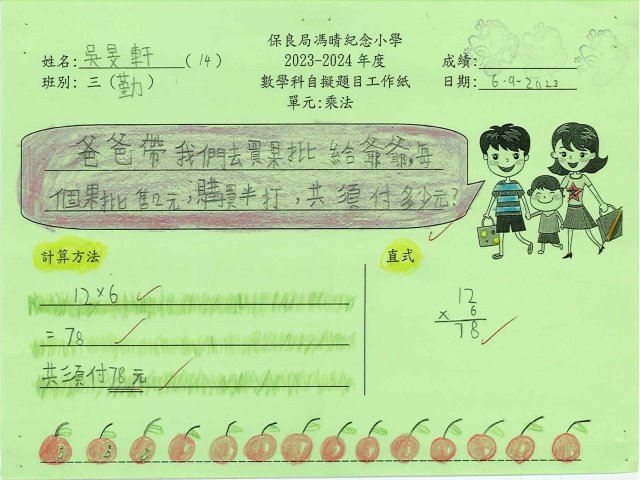 保良局馮晴紀念小學
姓名: 吳旻軒 (14)
2023-2024 年度
成績:
班別: 三 (勤)
數學科自擬題目工作紙
日期: 6-9-2023
單元:乘法
爸爸帶我們去買果批給爺爺,每
個果批售12元,購買半打,共須付多少元?
計算方法
直式
12×6
= 78
共須付78元
12
× 6
78